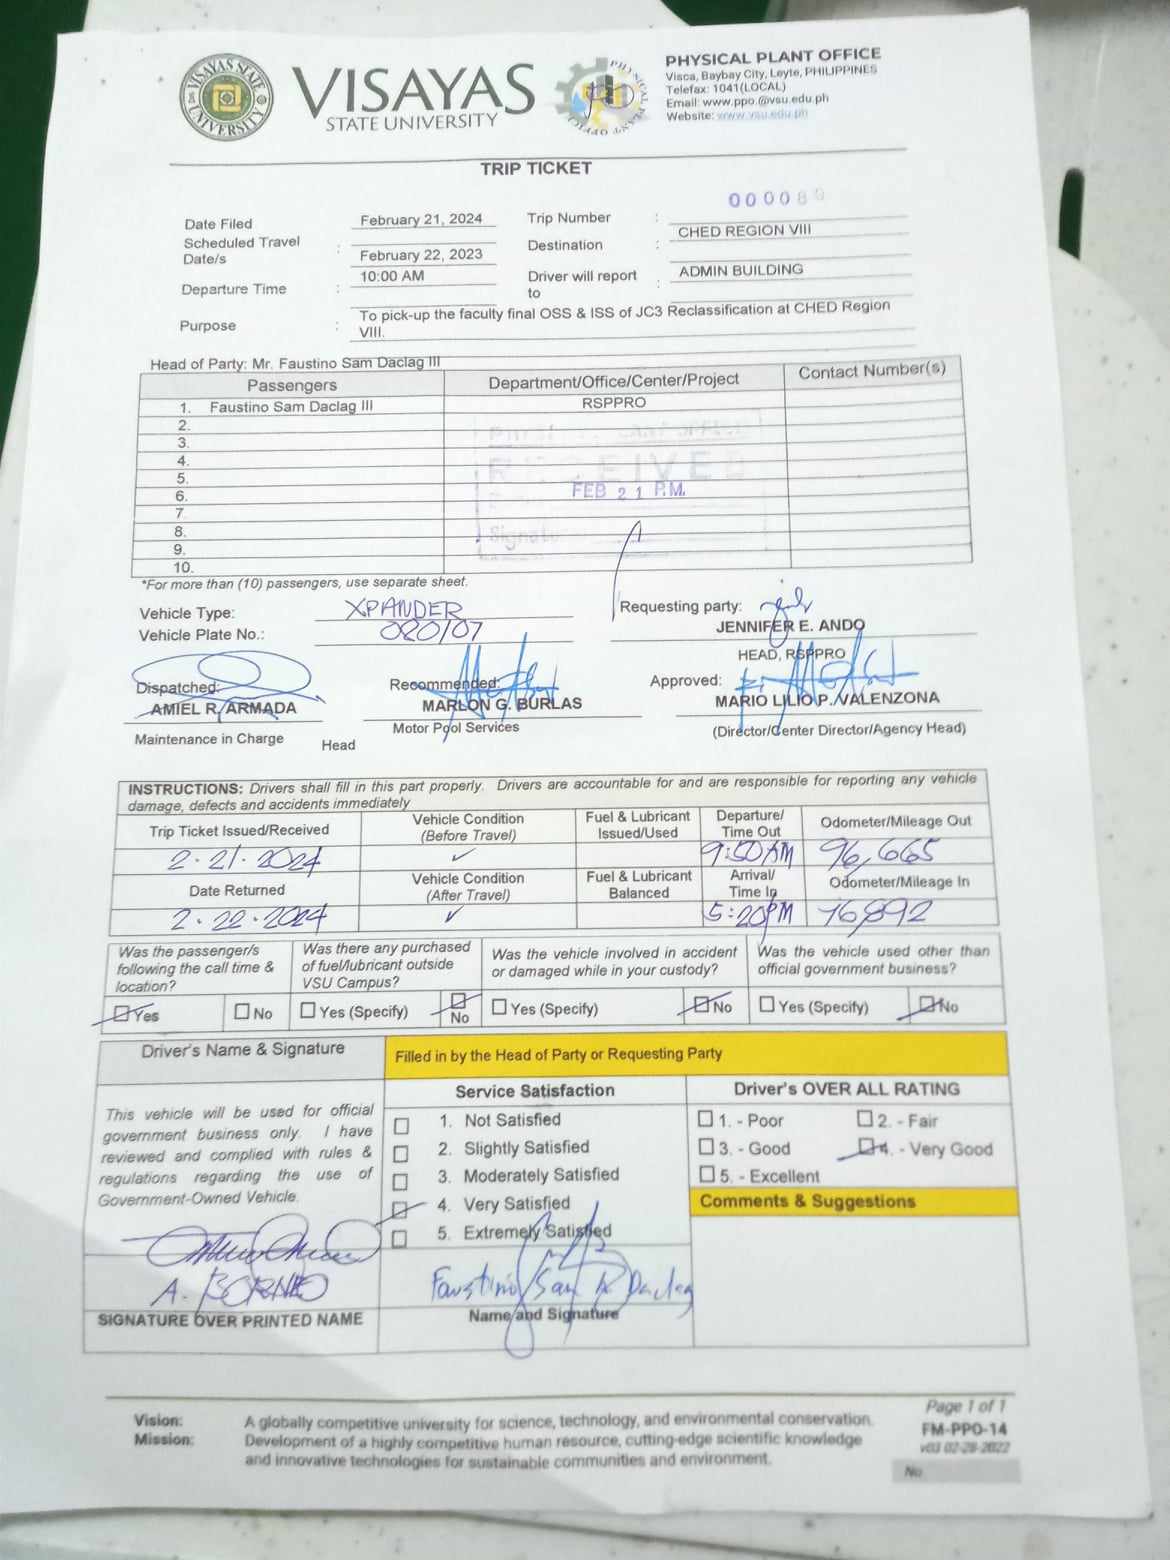 VISAYAS STATE UNIVERSITY
VISAYAS
STATE UNIVERSITY
PHYSICAL PLANT OFFICE
PHYSICAL PLANT OFFICE
Visca, Baybay City, Leyte, PHILIPPINES
Telefax: 1041(LOCAL)
Email: www.ppo.@vsu.edu.ph
Website: www.vsu.edu.ph
TRIP TICKET
Date Filed February 21, 2024 Trip Number : 000089
Scheduled Travel Date/s : February 22, 2023 Destination : CHED REGION VIII
Departure Time : 10:00 AM Driver will report to : ADMIN BUILDING
Purpose : To pick-up the faculty final OSS & ISS of JC3 Reclassification at CHED Region
VIII.
Head of Party: Mr. Faustino Sam Daclag III
Passengers Department/Office/Center/Project Contact Number(s)
1. Faustino Sam Daclag III RSPPRO
2.
3.
4.
5.
6.
7.
8.
9.
10.
RECEIVED
FEB 21 P.M.
*For more than (10) passengers, use separate sheet.
Vehicle Type: XPANDER Requesting party:
Vehicle Plate No.: 080107 JENNIFER E. ANDO
HEAD, RSPPRO
Dispatched: Recommended: Approved:
AMIEL R. ARMADA MARLON G. BURLAS MARIO LILIO P. VALENZONA
Maintenance in Charge Head Motor Pool Services (Director/Center Director/Agency Head)
INSTRUCTIONS: Drivers shall fill in this part properly. Drivers are accountable for and are responsible for reporting any vehicle
damage, defects and accidents immediately
Trip Ticket Issued/Received Vehicle Condition (Before Travel) Fuel & Lubricant Issued/Used Departure/ Time Out Odometer/Mileage Out
2-21-2024 ✓ 9:50 AM 96,665
Date Returned Vehicle Condition (After Travel) Fuel & Lubricant Balanced Arrival/ Time In Odometer/Mileage In
2-22-2024 ✓ 5:20PM 76,892
Was the passenger/s following the call time & location? Was there any purchased of fuel/lubricant outside VSU Campus? Was the vehicle involved in accident or damaged while in your custody? Was the vehicle used other than official government business?
Yes No Yes (Specify) No Yes (Specify) No Yes (Specify) No
Driver's Name & Signature Filled in by the Head of Party or Requesting Party
Service Satisfaction Driver's OVER ALL RATING
This vehicle will be used for official
government business only. I have
reviewed and complied with rules &
regulations regarding the use of
Government-Owned Vehicle.
1. Not Satisfied
2. Slightly Satisfied
3. Moderately Satisfied
4. Very Satisfied
5. Extremely Satisfied
1. - Poor 2. - Fair
3. - Good 4. - Very Good
5. - Excellent
Comments & Suggestions
A. BORNEO
SIGNATURE OVER PRINTED NAME
Faustino Sam Daclag
Name and Signature
Vision: A globally competitive university for science, technology, and environmental conservation.
Mission: Development of a highly competitive human resource, cutting-edge scientific knowledge
and innovative technologies for sustainable communities and environment.
Page 1 of 1
FM-PPO-14
v03 02-28-2022
No